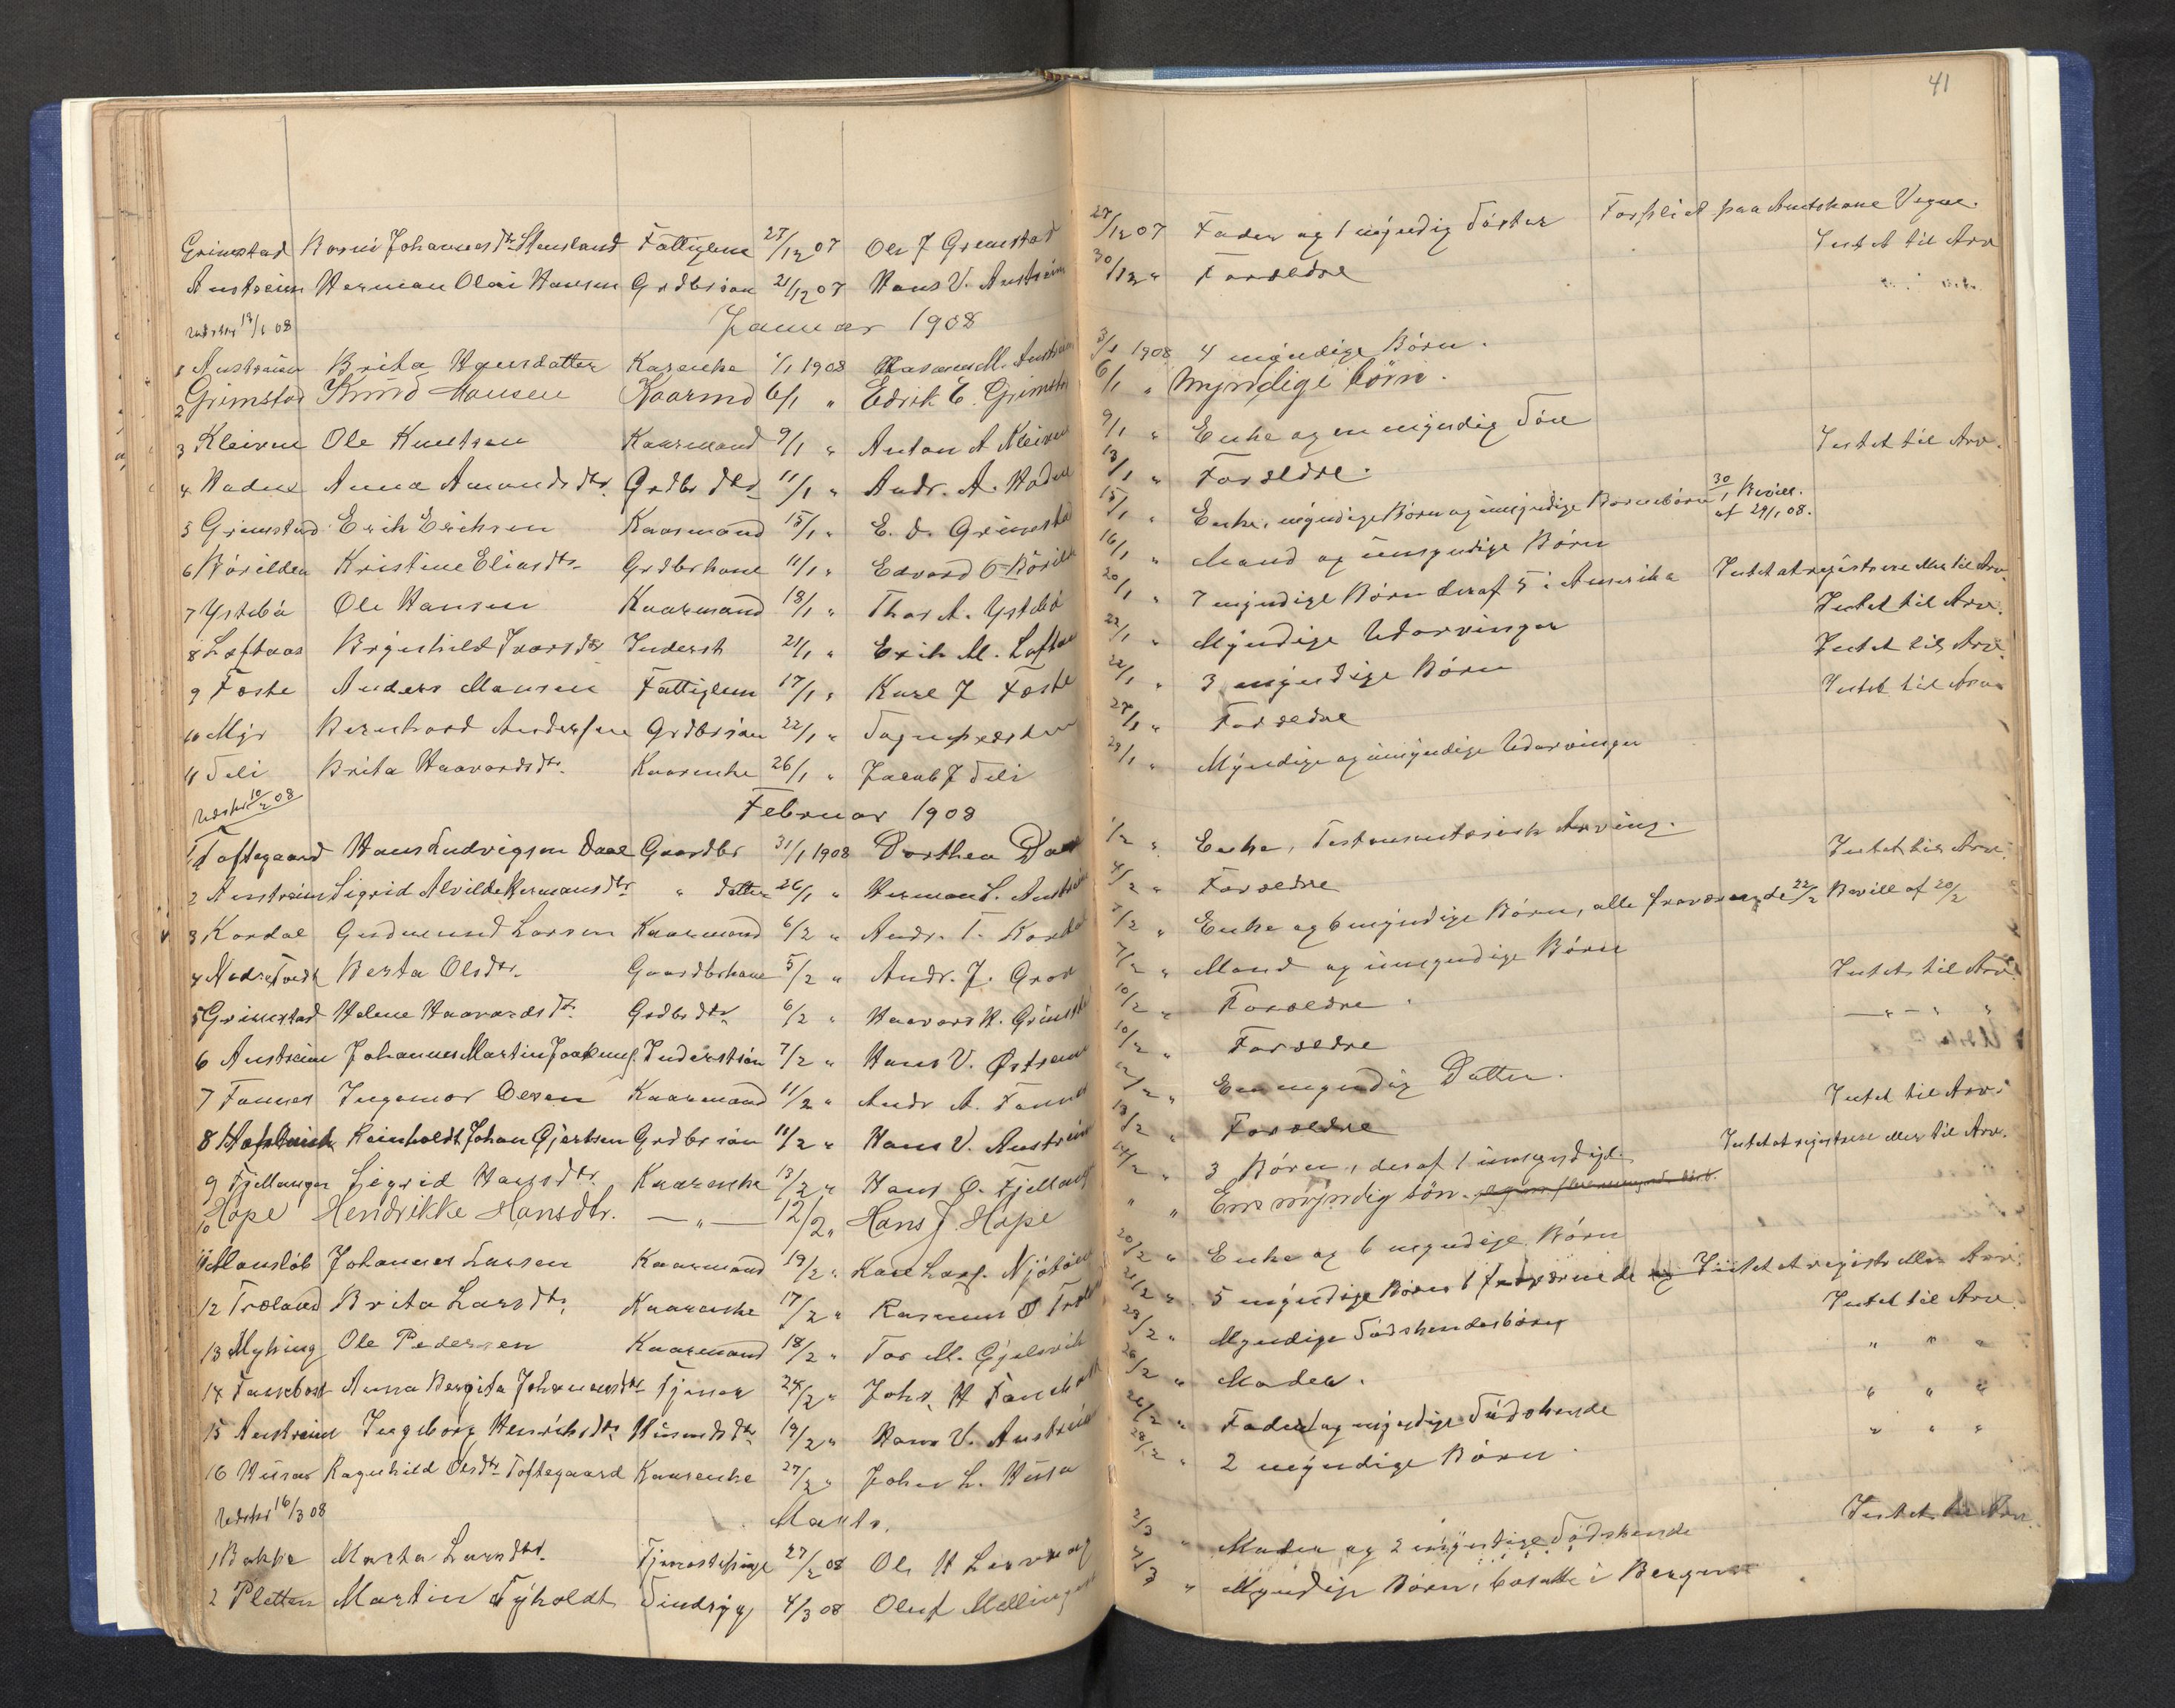 41
Grimstad Johannesdtr. Stensland Fattiglem 27/12 07 Ole J Grimstad 27/12 07 Fader og 1 myndig Söster Forpleiet paa Amtskone Vegne. Intet til Arv
Austreim Herman Olai Hansen Grdbrsøn 21/12 07 Hans V. Austreim 30/12 " Forældre
Udskr 18/1 08 Januar 1908
1 Austreim Brita Hansdatter Kaarenke 1/1 1908 Rasmus M. Austreim 3/1 1908 4 myndige Börn.
2 Grimstad Knud Hansen Kaarmd 6/1 " Edrik E. Grimstad 6/1 " Myndige börn.
3 Kleiven Ole Knutsen Kaarmand 9/1 " Anton A Kleiven 9/1 " Enke og en myndig Sön
4 Hadne Anna Amundsdtr. Grdbr dtr 11/1 " Andr. A. Hadne 13/1 " Forældre. Intet til Arv.
5 Grimstad Erik Eriksen Kaarmand 15/1 " E. E. Grimstad 15/1 " Enke, myndige Börn og umyndige Barnebörn 30/1 Bevill. af 29/1 08.
6 Börilden Kristine Eliasdtr. Grdbrkone 11/1 " Edvard O Börilden 16/1 " Mand og umyndige Börn
7 Ystebö Ole Hansen Kaarmand 18/1 " Thor A. Ystebö 20/1 " 7 myndige Börn deraf 5 i Amerika Intet at registrere eller til Arv.
8 Loftaas Brynhild Ivarsdtr Inderst 21/1 " Erik M. Loftaas 22/1 " Myndige Udarvinger Intet til Arv.
9 Foste Anders Monsen Fattiglem 17/1 " Karl J Foste 22/1 " 3 myndige Börn Intet til Arv.
10 Myr Bernhard Andersen Grdbrsön 22/1 " 27/1 " Forældre Intet til Arv.
11 Seli Brita Haavardsdtr. Kaarenke 26/1 " Jacob J Seli 29/1 " Myndige og umyndige Udarvinger
Udskr 10/2 08 Februar 1908
1 Toftegaard Hans Ludvigsen Daae Gaardbr 31/1 1908 Dorthea Daae 1/2 " Enke, Testamentarisk Arving.
2 Austreim Sigrid Alvilde Hermansdtr " datter 26/1 " Herman S. Austreim 4/2 " Forældre Intet til Arv.
3 Kordal Gudmund Larsen Kaarmand 6/2 " Andr. T. Kordal 7/2 " Enke og 6 myndige Börn, alle fraværende 22/2 Bevill af 20/2
4 Nedre Tvedt Berta Olsdtr. Gaardbrkone 5/2 " Andr. J. Grov 7/2 " Mand og umyndige Börn
5 Grimstad Helene Haavardsdtr. Grdbr dtr 6/2 " Haavard H. Grimstad 10/2 " Forældre. Intet til Arv.
6 Austreim Johannes Martin Joakims. Inderstsön 7/2 " Hans V. Østreim 10/2 " Forældre — " — " "
7 Fonnes Ingemor Olsen Kaarmand 11/2 " Andr A. Fonnes 12/2 " En myndig Datter.
8 Reinholdt Johan Gjertsen Grdbr sön 11/2 " Hans V. Austreim 13/2 " Forældre Intet til Arv.
9 Fjellanger Sigrid Hansdtr. Kaarenke 13/2 " Hans O. Fjellanger 14/2 " 3 Börn, deraf 1 umyndigt Intet at registrere eller til Arv.
10 Hope Hendrikke Hansdtr. — " — 12/2 " Hans J. Hope " " En myndig sön.
11 Manslöb Johannes Larsen Kaarmand 19/2 " Karl Lars. Njötöen 20/2 " Enke og 6 myndige Börn
12 Træland Brita Larsdtr. Kaarenke 17/2 " Rasmus O Træland 21/2 " 5 myndige Börn 1 fraværende Intet at registr eller Arv.
13 Myking Ole Pedersen Kaarmand 18/2 " Tor M. Gjelsvik 23/2 " Myndige Södskendebörn Intet til Arv.
14 Fanebost Anna Bergita Johannesdtr Tjener 24/2 " Johs. H Fanebost 26/2 " Moder. " " "
15 Austreim Ingeborg Henriksdtr. Husmdsdtr 19/2 " Hans V. Austreim 26/2 " Fader og myndige Södskende " " "
16 Husar Ragnhild Olsdtr Toftegaard Kaarenke 27/2 " Johan L. Husa 28/2 " 2 myndige Börn. " " "
Udskr 16/3 08 Marts.
1 Bakke Marta Larsdtr. Tjenestepige 27/2 08 Ole H Lervaag 2/3 " Moder og 2 myndige Södskende Intet til Arv.
2 Pletten Martin Tyholdt Sindsyg 4/3 08 Oluf Mellingen 4/3 " Myndige Börn, bosatte i Bergen